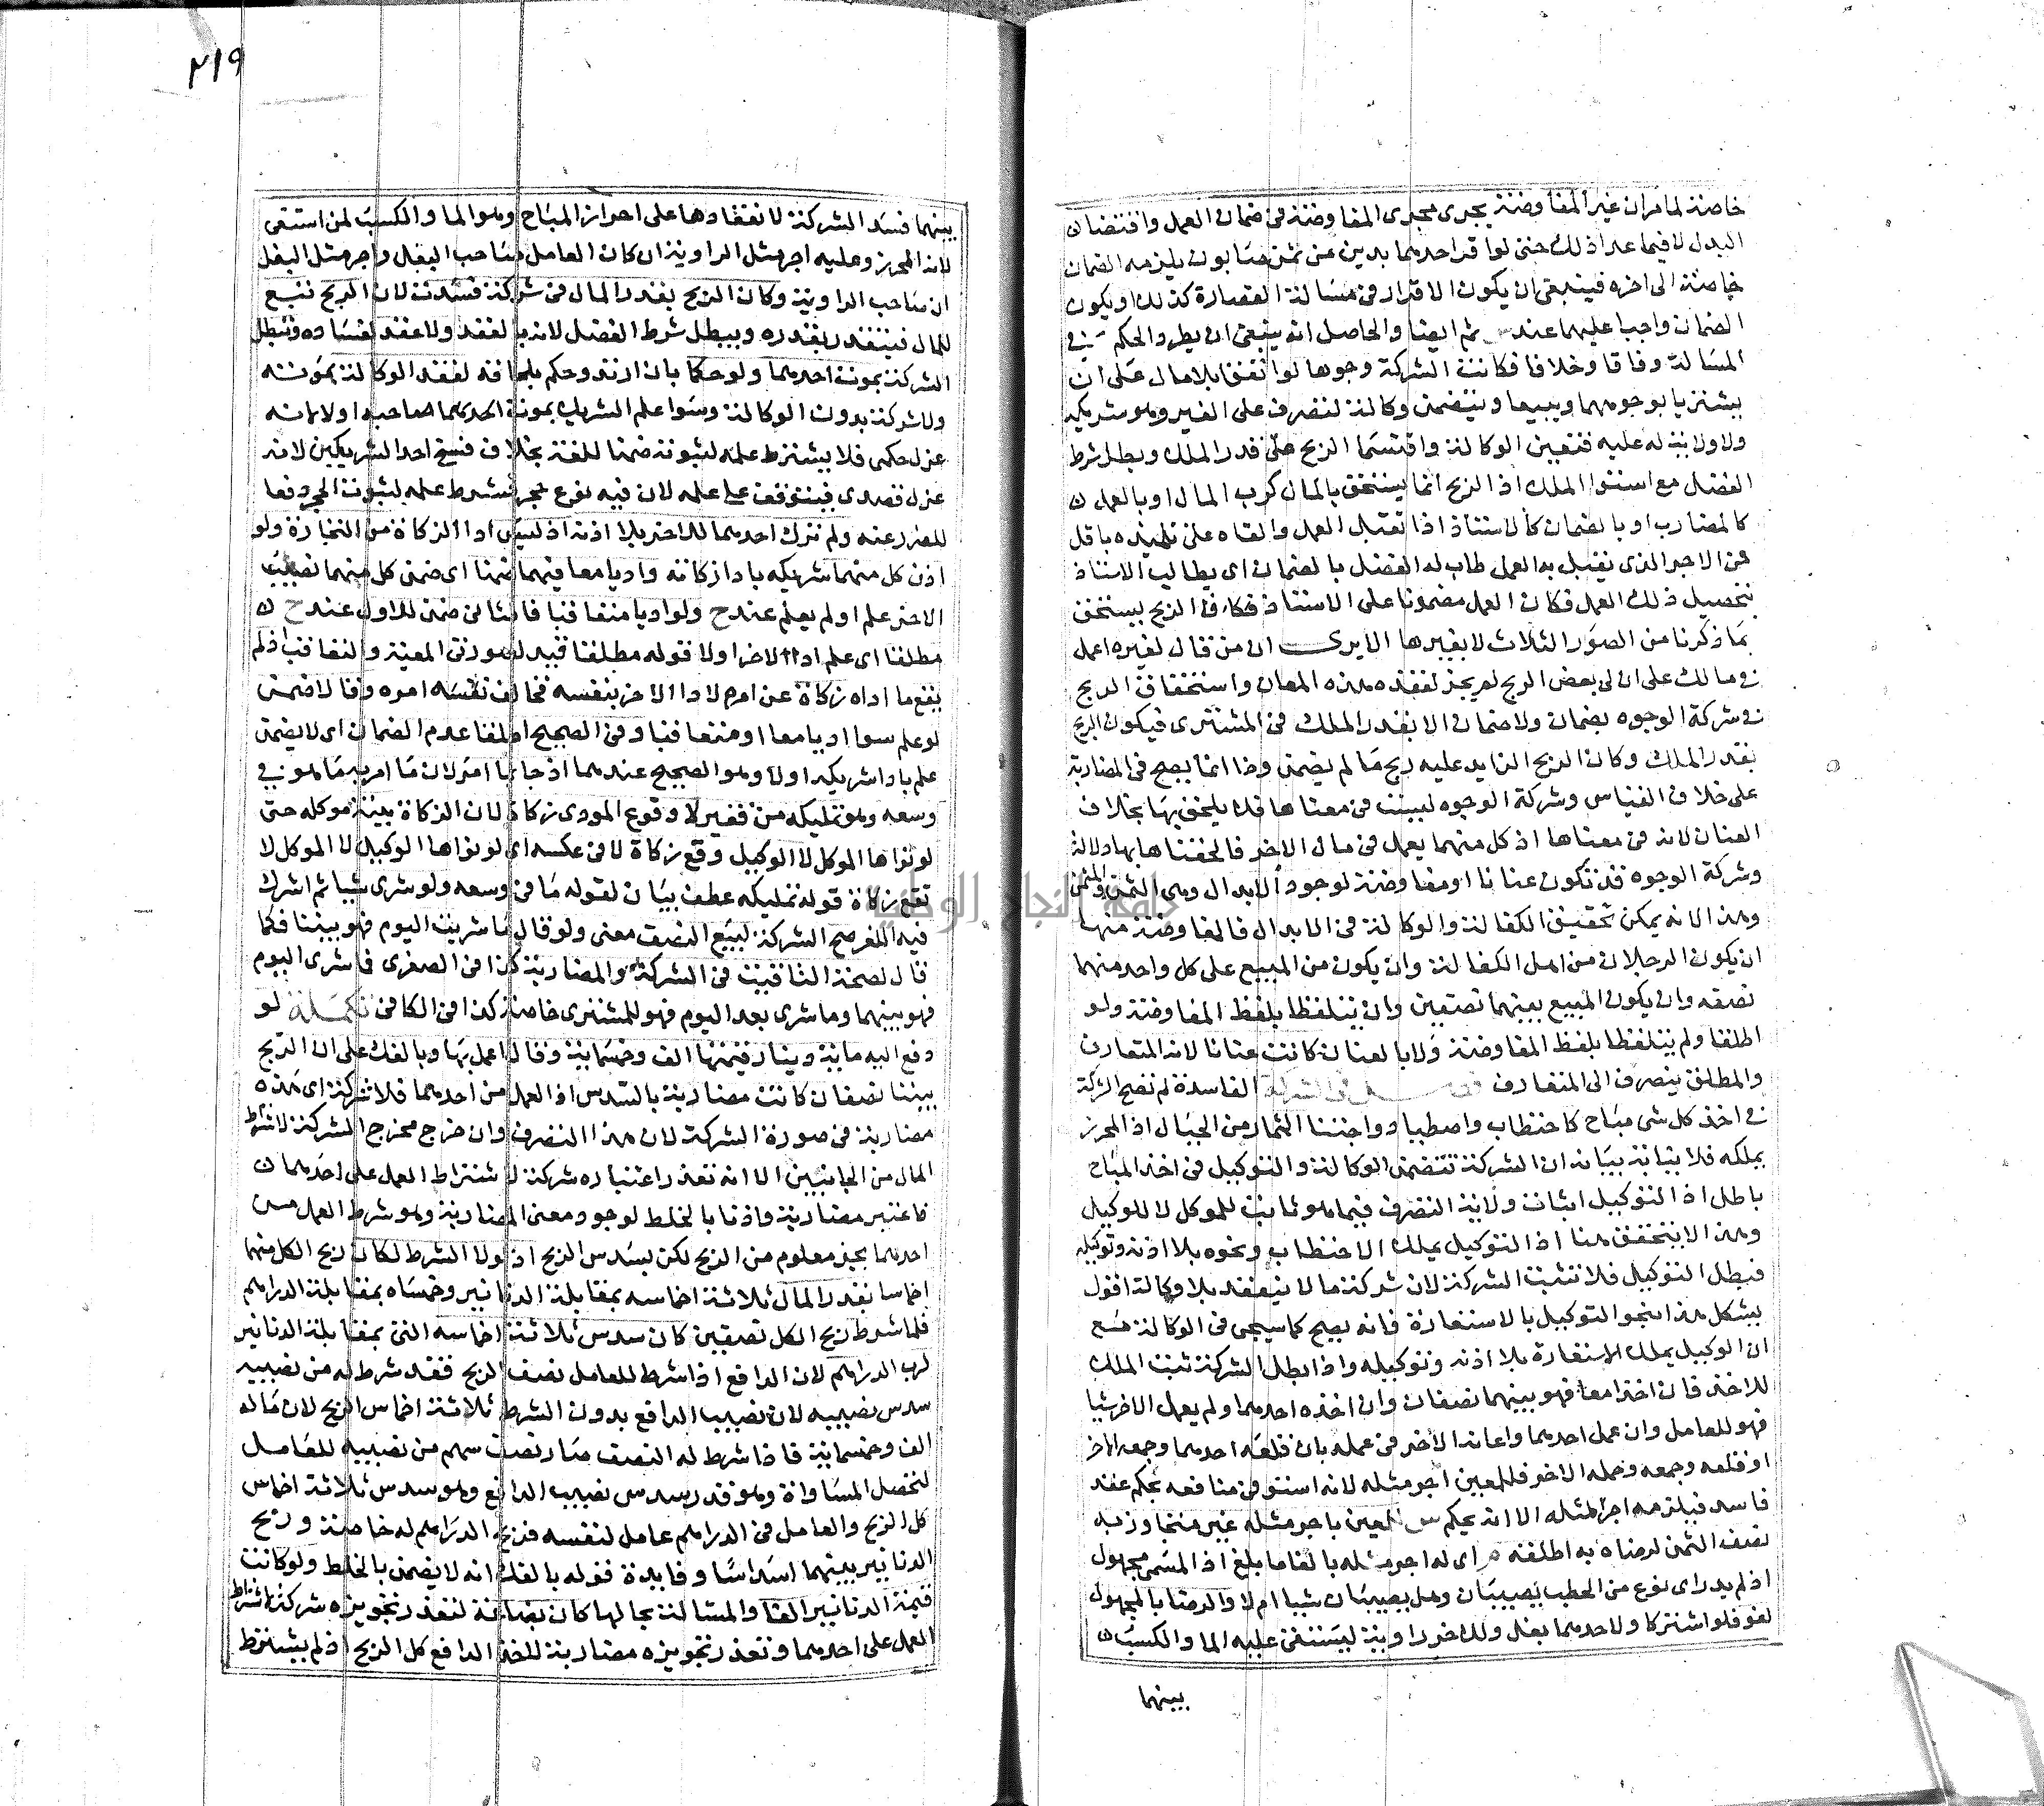 خاصة لما مر ان غير المفاوضة يجرى مجرى المفاوضة فى ضمان العمل واقتضان
البدل لا فيما عدا ذلك حتى لو اقر احدهما بدين من ثمن صابون يلزمه الضمان
خاصة الى اخره فينبغى ان يكون الاقرار فى مسالة القصارة كذلك او يكون
الضمان واجبا عليهما عند ثم ايضا والحاصل انه ينبغى ان يطرد الحكم فى
المسالة وفاقا وخلافا فكانت الشركة وجوها لو اتفقا بلا مال على ان
يشتريا بوجوههما ويبيعا وتتضمن وكالة لتصرف على الغير وهو شريكه
ولا ولاية له عليه فتعين الوكالة واقتسما الربح على قدر الملك وبطل شرط
الفضل مع استوا الملك اذ الربح انما يستحق بالمال كرب المال او بالعمل
كالمضارب او بالضمان كالاستاذ اذا تقبل العمل والقاه على تلميذه باقل
من الاجر الذى يقبل به العمل طاب له الفضل بالضمان اى يطالب الاستاذ
بتحصيل ذلك العمل فكان العمل مضمونا على الاستاذ فكان الربح يستحق
بما ذكرنا من الصور الثلاث لا بغيرها الا يرى ان من قال لغيره اعمل
فى مالك على ان لى بعض الربح لم يجز لفقد هذه المعان واستحقاق الربح
فى شركة الوجوه بضمان ولا ضمان الا بقدر الملك فى المشترى فيكون الربح
بقدر الملك وكان الربح الزايد عليه ربح ما لم يضمن وذا انما يصح فى المضاربة
على خلاف القياس وشركة الوجوه ليست فى معناها فلا يلحق بها بخلاف
العنان لانه فى معناها اذ كل منهما يعمل فى مال الاخر فالحقناها بها دلالة
وشركة الوجوه قد تكون عنانا او مفاوضة لوجود الابدال وهى الثمن والمثمن
وهذا لانه يمكن تحقيق الكفالة والوكالة فى الابدال فالمفاوضة منها
ان يكون الرجلان من اهل الكفالة وان يكون من المبيع على كل واحد منهما
نصفه وان يكون المبيع بينهما نصفين وان يتلفظا بلفظ المفاوضة ولو
اطلقا ولم يتلفظا بلفظ المفاوضة ولا بالعنان كانت عنانا لانه المتعارف
والمطلق ينصرف الى المتعارف فصل فى الشركة الفاسدة لم تصح الشركة
فى اخذ كل شى مباح كاحتطاب واصطياد واجتنا الثمار من الجبال اذ المحرز
يملكه فلا بينا بيانه ان الشركة تتضمن الوكالة والتوكيل فى اخذ المباح
باطل اذ التوكيل اثبات ولاية التصرف فيما هو ثابت للموكل لا للوكيل
وهذا لا يتحقق هنا اذ التوكيل يملك الاحتطاب ونحوه بلا اذنه وتوكيله
فبطل التوكيل فلا تثبت الشركة لان شركة ما لا ينعقد بلا وكالة اقول
يشكل هذا بنحو التوكيل بالاستعارة فانه يصح كما سيجى فى الوكالة مع
ان الوكيل يملك الاستعارة بلا اذنه وتوكيله واذا بطل الشركة ثبت الملك
للاخذ فان اخذا معا فهو بينهما نصفان وان اخذه احدهما ولم يعمل الاخر شيا
فهو للعامل وان عمل احدهما واعانه الاخر فى عمله بان قلعه احدهما وجمعه الاخر
او قلعه وجمعه وحمله الاخر فللمعين اجر مثله لانه استوفى منافعه بحكم عقد
فاسد فيلزمه اجر المثله الا انه يحكم للمعين باجر مثله غير متجاوز به
نصف الثمن لرضاه به اطلقه م اى له اجر مثله بالغا ما بلغ اذ المسمى مجهول
اذ لم يدر اى نوع من الحطب يصيبان وهل يصيبان شيا ام لا والرضا بالمجهول
لغو فلو اشتركا ولاحدهما بغل وللاخر راوية ليستقى عليه الما والكسب
بينهما
٢١٩
بينهما فسد الشركة لانعقادها على احراز المباح وهو الما والكسب لمن استقى
لانه المحرز وعليه اجر مثل الراوية ان كان العامل صاحب البغل واجر مثل البغل
ان صاحب الراوية وكان الربح بقدر المال فى شركة فسدت لان الربح تتبع
للمال فيتقدر بقدره ويبطل شرط الفضل لانه بالعقد ولا عقد لفساده وتبطل
الشركة بموت احدهما ولو حكما بان ارتد وحكم بلحاقه لفقد الوكالة بموته
ولا شركة بدون الوكالة وسوا علم الشريك بموت احدهما صاحبه او لا لانه
عزل حكمى فلا يشترط علمه لثبوته ضمنا للغة بخلاف فسخ احد الشريكين لانه
عزل قصدى فيتوقف على علمه لان فيه نوع حجر فشرط علمه لثبوت الحجر دفعا
للضرر عنه ولم تزك احدهما للاخر بلا اذنه اذ ليس ادا الزكاة من التجارة ولو
اذن كل منهما شريكه بادا زكاته واديا معا فيهما ضمنا اى ضمن كل منهما نصيب
الاخر علم او لم يعلم عند ح ولو اديا متعاقبا فالثانى ضمن للاول عند ح
مطلقا اى علم ادا الاخر او لا قوله مطلقا قيد لصورتى المعية والتعاقب اذ لم
يقع ما اداه زكاة عن امره لادا الاخر بنفسه فخالف نفسه امره وقالا ضمن
لو علم سوا اديا معا او متعاقبا وفى الصحيح اطلقا عدم الضمان اى لا يضمن
علم بادا شريكه او لا وهو الصحيح عندهما اذ جا بما امر لان ما امر به ما هو فى
وسعه وهو تمليكه من فقير لا وقوع المودى زكاة لان الزكاة بنية موكله حتى
لو نواها الموكل لا الوكيل وقع زكاة لا فى عكسه اى لو نواها الوكيل لا الموكل لا
تقع زكاة قوله تمليكه عطف بيان لقوله ما فى وسعه ولو شرى شيا ثم اشرك
فيه المغر صح الشركة لبيع النصف معنى ولو قال ما شريت اليوم فهو بيننا فكما
قال لصحة التاقيت فى الشركة والمضاربة كذا فى الصغرى فما شرى اليوم
فهو بينهما وما شرى بعد اليوم فهو للمشترى خاصة كذا فى الكافى تكملة لو
دفع اليه ماية دينار قيمتها الف وخمسماية وقال اعمل بها وبالفك على ان الربح
بيننا نصفان كانت مضاربة بالسدس اذ العمل من احدهما فلا شركة اى هذه
مضاربة فى صورة الشركة لان هذا التصرف وان خرج مخرج الشركة لاشتراط
المال من الجانبين الا انه تعذر اعتباره شركة لاشتراط العمل على احدهما
فاعتبر مضاربة واذنا بالخلط لوجود معنى المضاربة وهو شرط العمل من
احدهما بجز معلوم من الربح لكن بسدس الربح اذ لولا الشرط لكان ربح الكل منهما
اخماسا بقدر المال ثلاثة اخماسه بمقابلة الدنانير وخمساه بمقابلة الدراهم
فلما شرط ربح الكل نصفين كان سدس ثلاثة اخماسه التى بمقابلة الدنانير
لرب الدراهم لان الدافع اذا شرط للعامل نصف الربح فقد شرط له من نصيبه
سدس نصيبه لان نصيب الدافع بدون الشرط ثلاثة اخماس الربح لان ماله
الف وخمسماية فاذا شرط له النصف صار نصف سهم من نصيبه للعامل
لتحصل المساواة وهو قدر سدس نصيب الدافع وهو سدس ثلاثة اخماس
كل الربح والعامل فى الدراهم عامل لنفسه فربح الدراهم له خاصة وربح
الدنانير بينهما اسداسا وفايدة قوله بالفك انه لا يضمن بالخلط ولو كانت
قيمة الدنانير الفا والمسالة بحالها كان بضاعة لتعذر تجويزه شركة لاشتراط
العمل على احدهما وتعذر تجويزه مضاربة للخذ الدافع كل الربح اذ لم يشترط
جامعة النجاح الوطنية